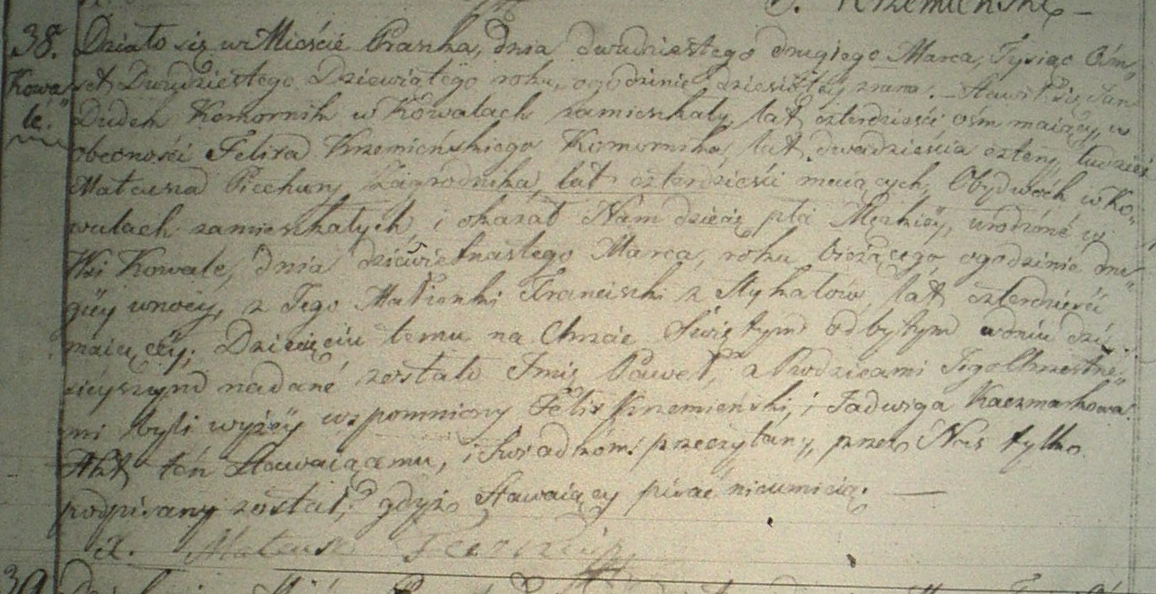 J. Krzemieński
38. Działo się w Mieście Praszka, dnia dwudziestego drugiego Marca, Tysiąc Óm„
Kowa„ set Dwudziestego Dziewiątego roku, o godzinie dziesiątey zrana. Stawił się Jan
le. Dudek Komornik w Kowalach zamieszkały, lat czterdzieści ośm maiący, w
obecności Felixa Krzemieńskiego Komornika, lat dwadzieścia cztery, tudzież
Mateusza Piechury Zagrodnika, lat czterdzieści maiących, Obydwóch w Ko„
walach zamieszkałych, i okazał Nam dziecię płci Męzkiéy, urodzoné w
Wsi Kowale, dnia dziewietnastego Marca, roku bieżącego o godzinie dru„
giéy w nocy, z Jego Małżonki Franciszki z lat czterdzieści
maiącéy; Dziecięciu temu na Chrzcie Świętym odbytym w dniu dzi„
sieyszym nadané zostało Imię Paweł, a Rodzicami Jego Chrzestne„
mi byli wyżéy wspomniony Felix Krzemieński, i Jadwiga Kaczmarkowa.
Akt ten Stawaiącemu, i Świadkom przeczytany, przez Nas tylko
podpisany został, gdyż Stawaiący pisać nieumieią.
X. Mateusz
39.